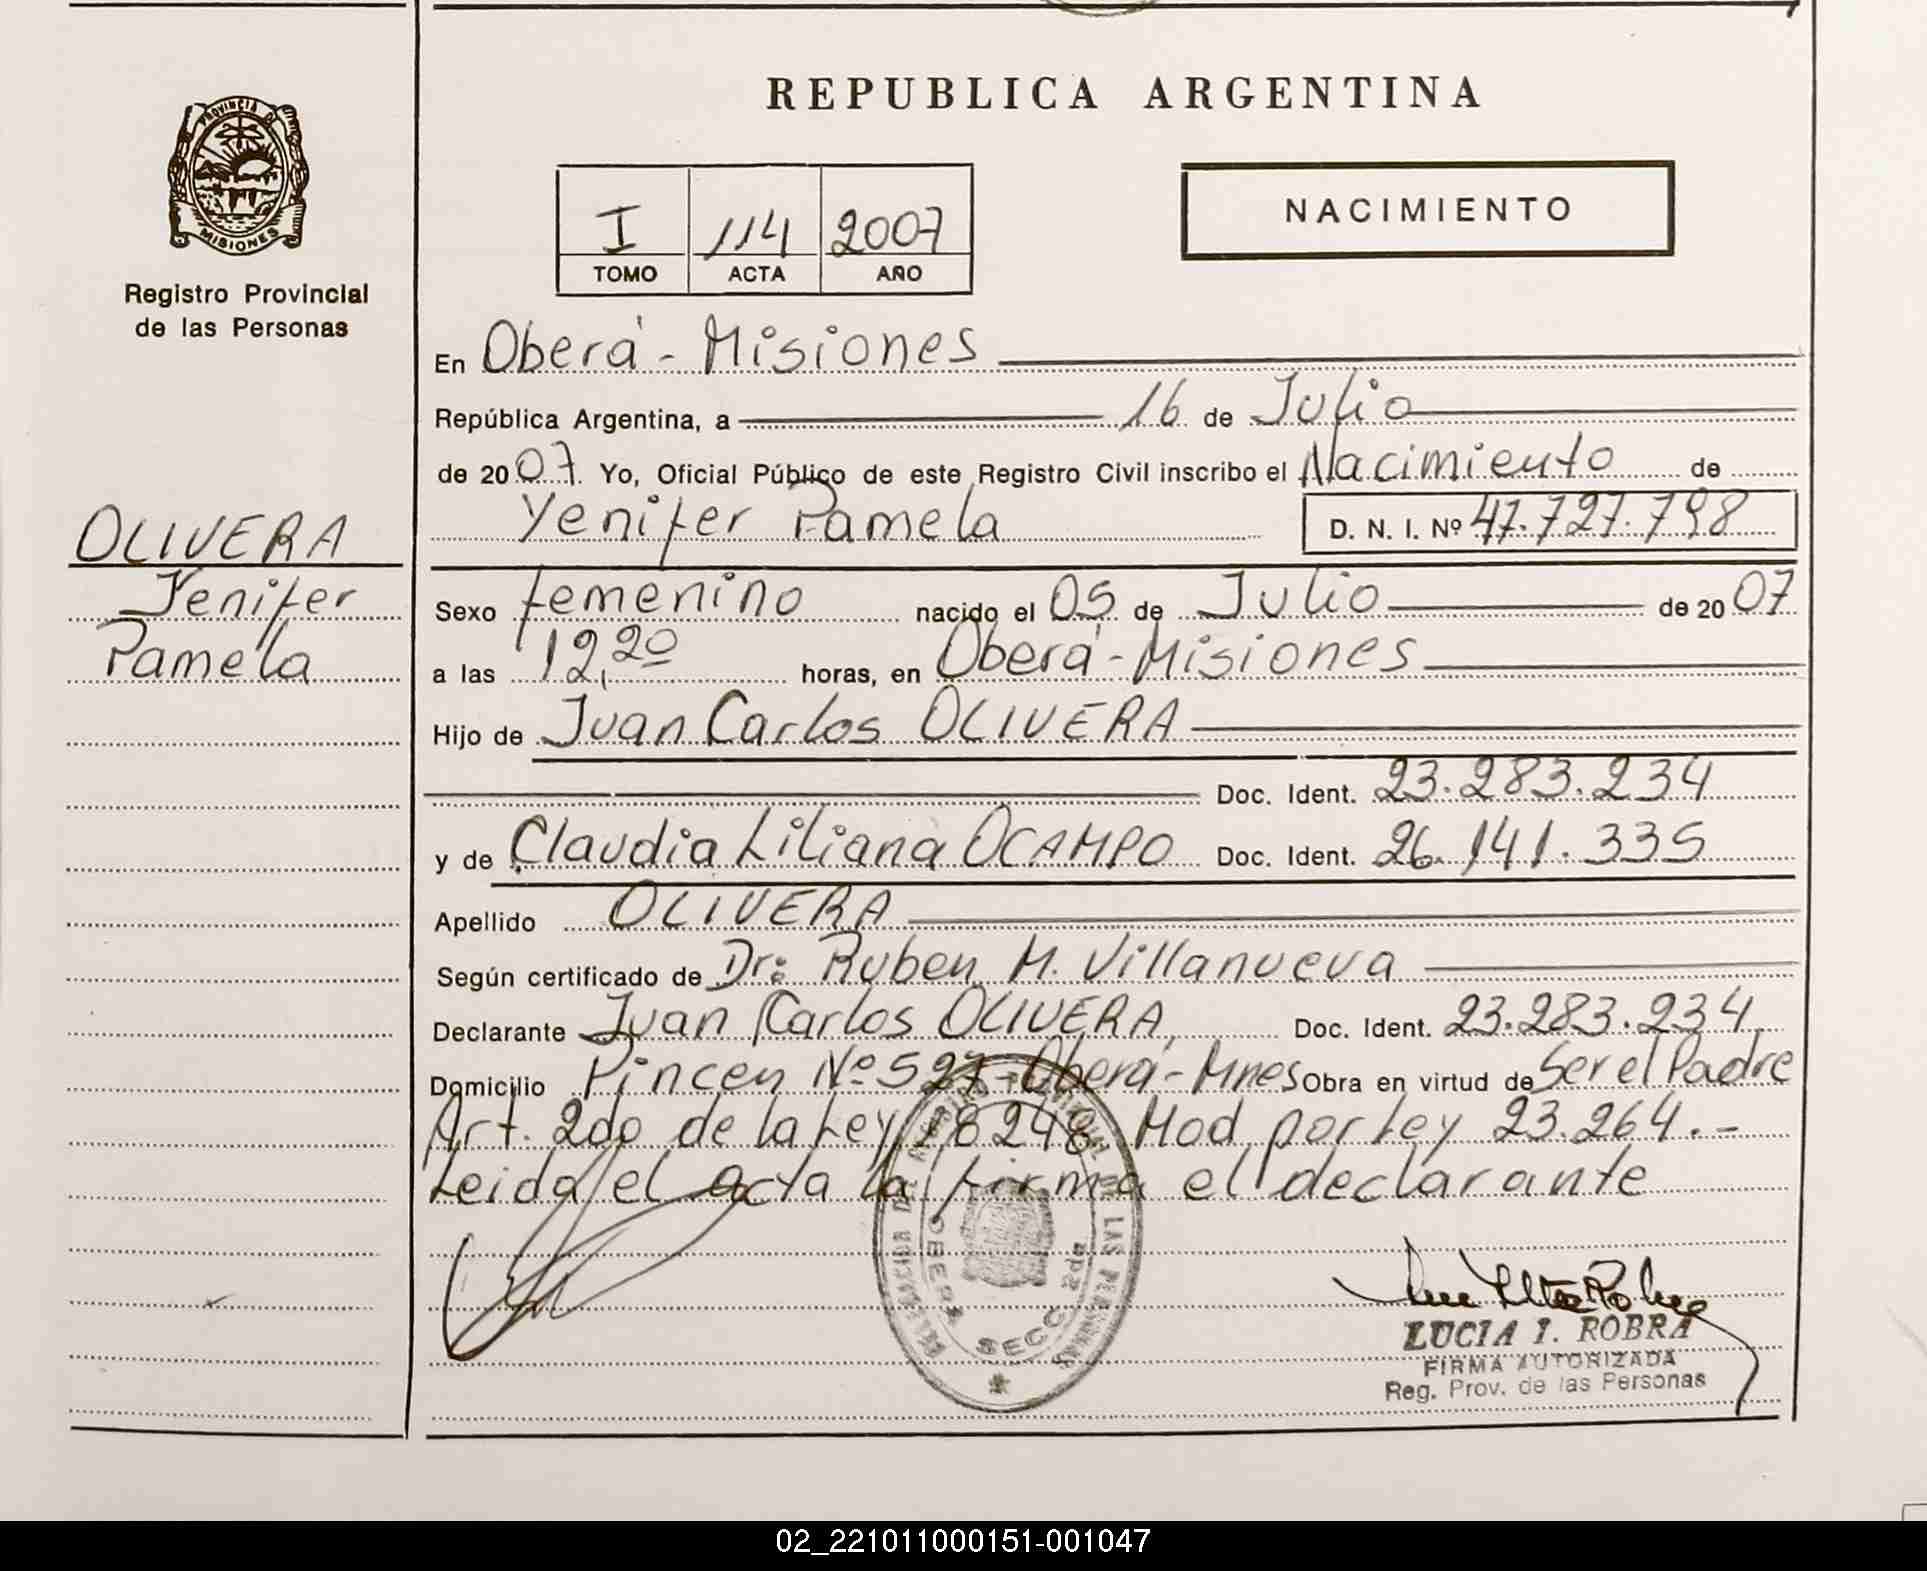 REPUBLICA ARGENTINA
PROVINCIA DE
MISIONES
Registro Provincial
de las Personas
I 114 2007
TOMO ACTA AÑO
NACIMIENTO
En Oberá - Misiones
República Argentina, a 16 de Julio
de 2007. Yo, Oficial Público de este Registro Civil inscribo el Nacimiento de
Yenifer Pamela D. N. I. Nº 47.727.798
OLIVERA
Yenifer
Pamela
Sexo femenino nacido el 05 de Julio de 2007
a las 12,20 horas, en Oberá - Misiones
Hijo de Juan Carlos OLIVERA
Doc. Ident. 23.283.234
y de Claudia Liliana OCAMPO Doc. Ident. 26.141.335
Apellido OLIVERA
Según certificado de Dr: Ruben M. Villanueva
Declarante Juan Carlos OLIVERA Doc. Ident. 23.283.234
Domicilio Pincen Nº 527 - Oberá - Mnes Obra en virtud de Ser el Padre
Art. 2do de la Ley 18248 Mod por Ley 23.264.-
Leida el acta la firma el declarante
OBERA SECC 2da
LAS PERSONAS
LUCIA I. ROBRA
FIRMA AUTORIZADA
Reg. Prov. de las Personas
02_221011000151-001047